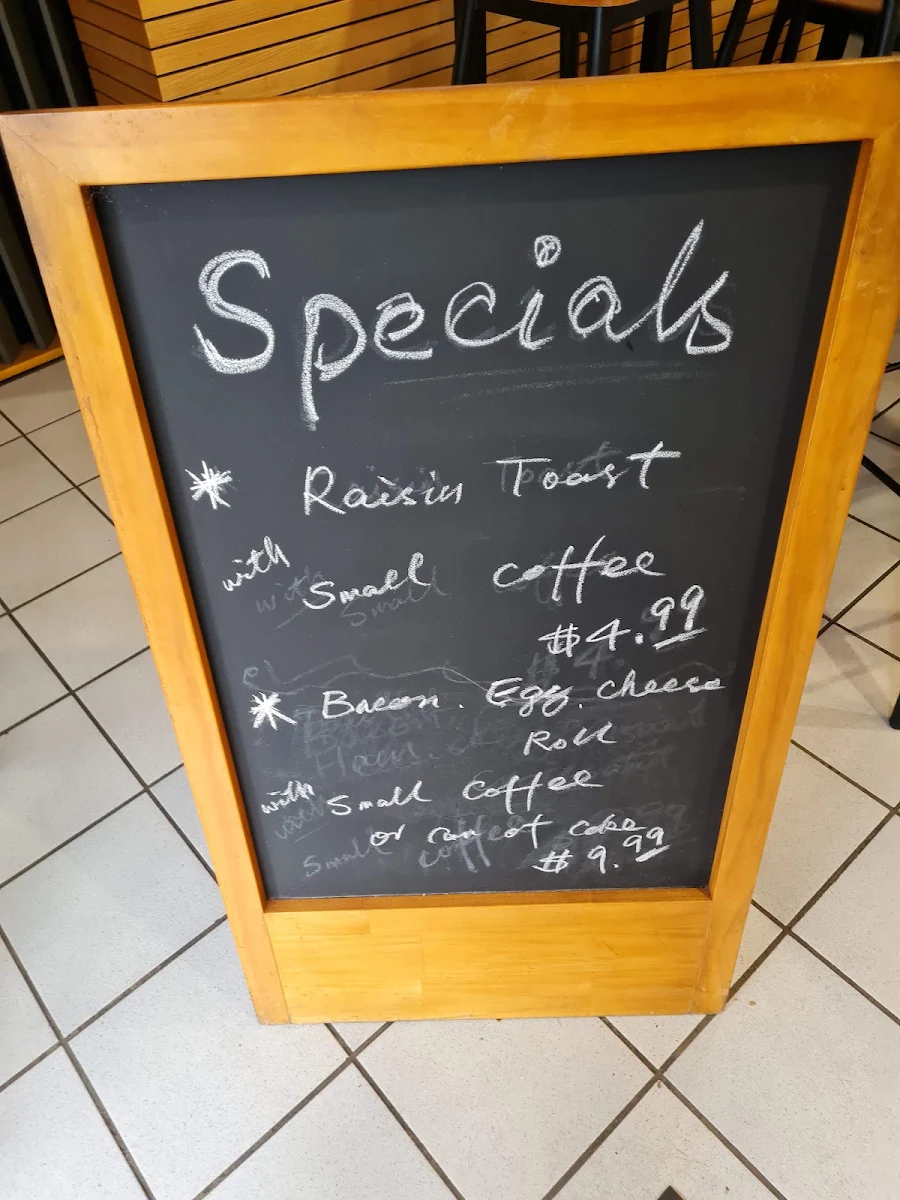 Specials
* Raisin Toast
with Small coffee
$4.99
* Bacon. Egg. cheese
Roll
with Small coffee
or can of coke
$9.99